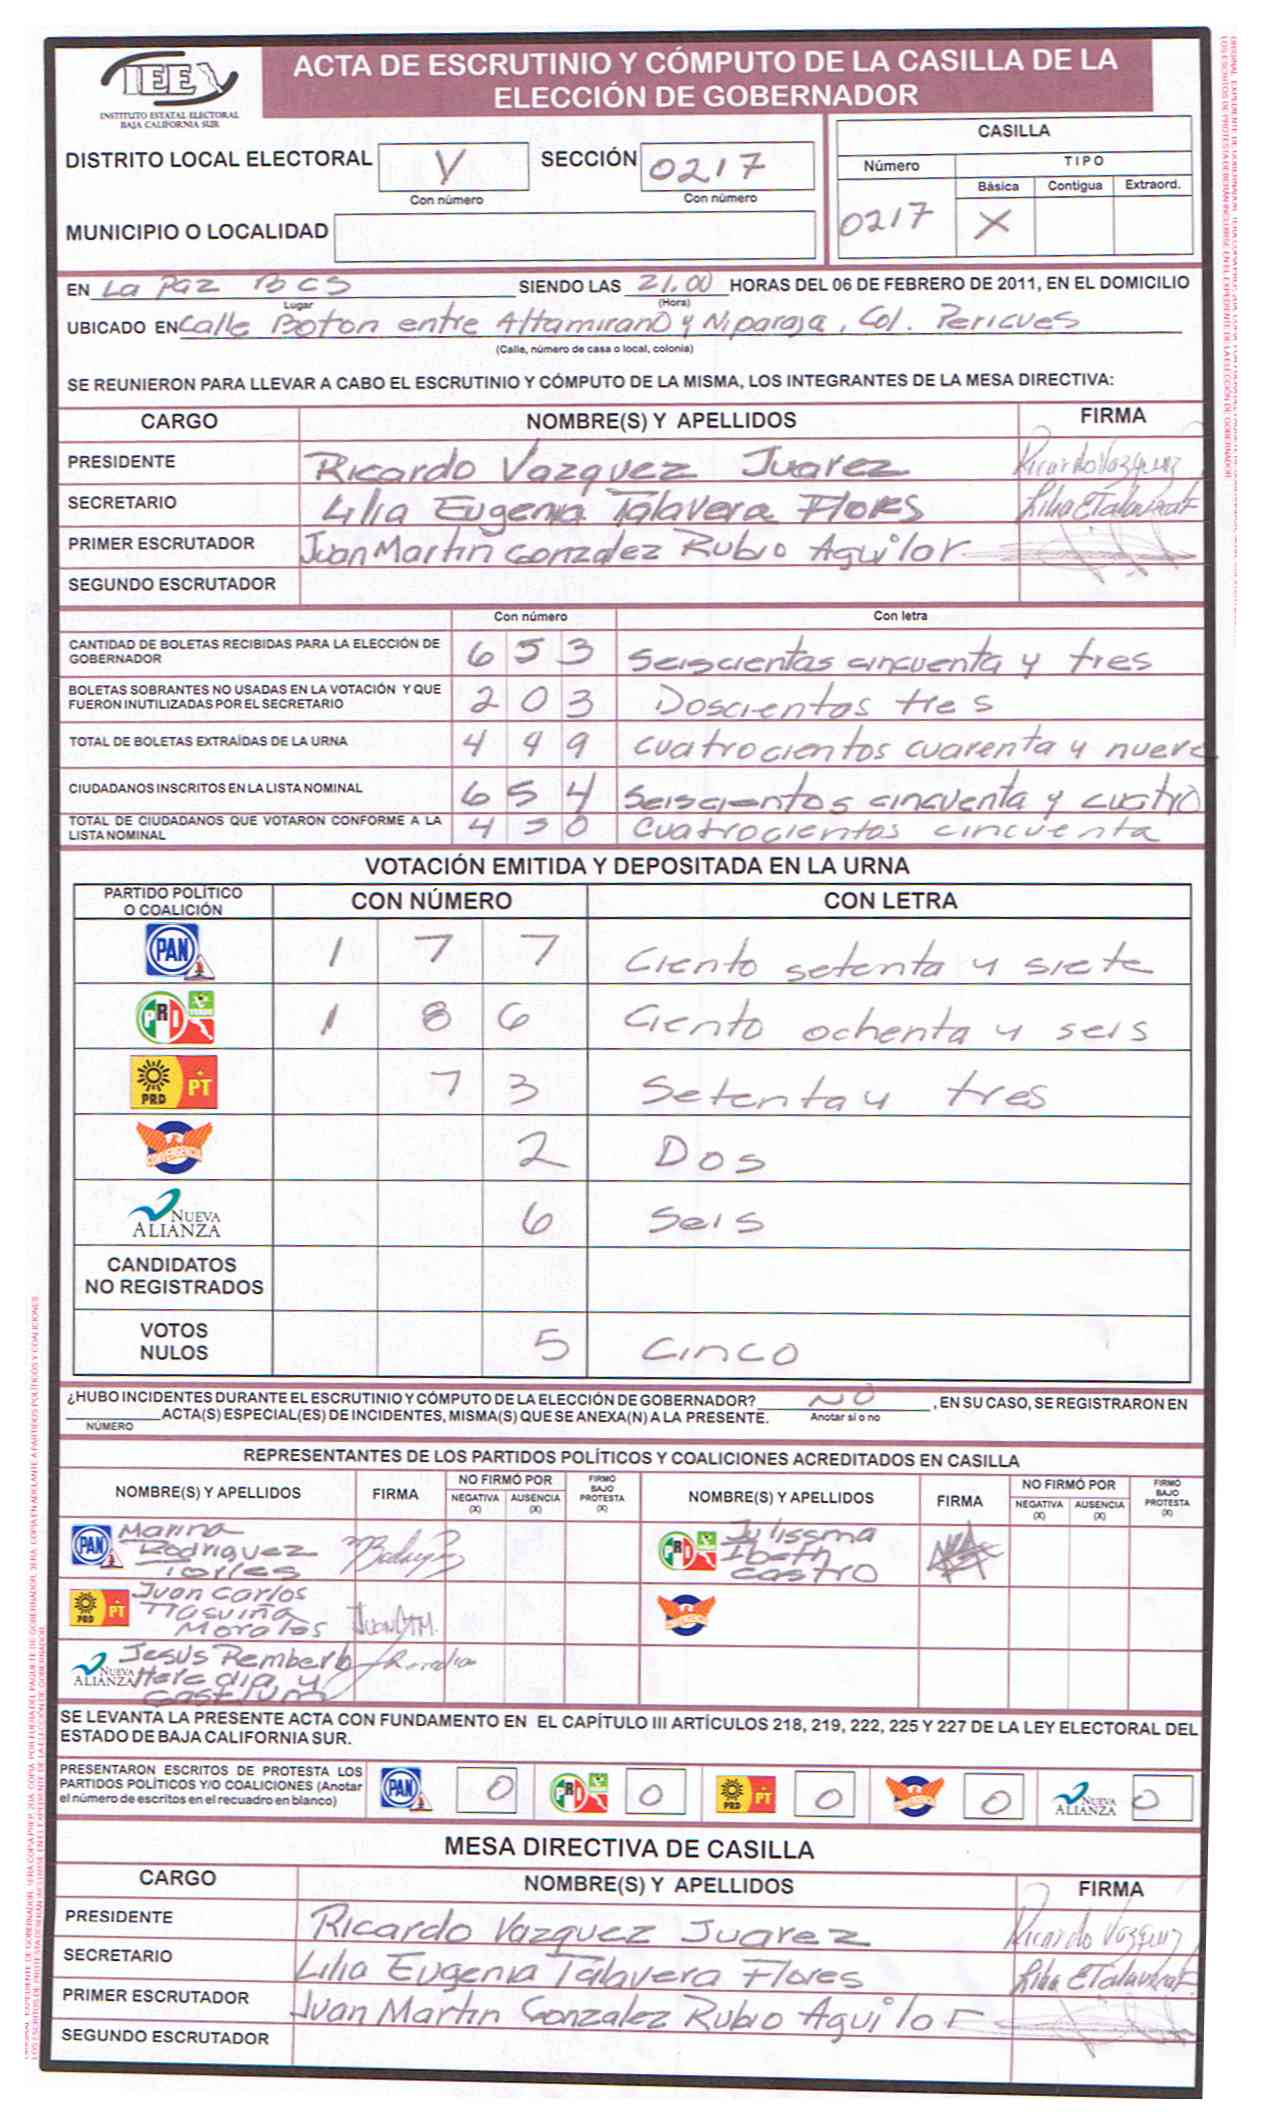 IEE
INSTITUTO ESTATAL ELECTORAL
BAJA CALIFORNIA SUR
ACTA DE ESCRUTINIO Y CÓMPUTO DE LA CASILLA DE LA
ELECCIÓN DE GOBERNADOR
DISTRITO LOCAL ELECTORAL V SECCIÓN 0217
Con número Con número
MUNICIPIO O LOCALIDAD
CASILLA
Número TIPO
Básica Contigua Extraord.
0217 X
EN La Paz BCS SIENDO LAS 21.00 HORAS DEL 06 DE FEBRERO DE 2011, EN EL DOMICILIO
Lugar (Hora)
UBICADO EN Calle Boton entre Altamirano y Niparaja, Col. Pericues
(Calle, número de casa o local, colonia)
SE REUNIERON PARA LLEVAR A CABO EL ESCRUTINIO Y CÓMPUTO DE LA MISMA, LOS INTEGRANTES DE LA MESA DIRECTIVA:
CARGO NOMBRE(S) Y APELLIDOS FIRMA
PRESIDENTE Ricardo Vazquez Juarez Ricardo Vazquez
SECRETARIO Lilia Eugenia Talavera Flores Lilia E Talavera F
PRIMER ESCRUTADOR Juan Martin Gonzalez Rubio Aguilar
SEGUNDO ESCRUTADOR
Con número Con letra
CANTIDAD DE BOLETAS RECIBIDAS PARA LA ELECCIÓN DE
GOBERNADOR 6 5 3 Seiscientas cincuenta y tres
BOLETAS SOBRANTES NO USADAS EN LA VOTACIÓN Y QUE
FUERON INUTILIZADAS POR EL SECRETARIO 2 0 3 Doscientos tres
TOTAL DE BOLETAS EXTRAÍDAS DE LA URNA 4 4 9 cuatrocientos cuarenta y nueve
CIUDADANOS INSCRITOS EN LA LISTA NOMINAL 6 5 4 Seiscientos cincuenta y cuatro
TOTAL DE CIUDADANOS QUE VOTARON CONFORME A LA
LISTA NOMINAL 4 5 0 Cuatrocientos cincuenta
VOTACIÓN EMITIDA Y DEPOSITADA EN LA URNA
PARTIDO POLÍTICO
O COALICIÓN CON NÚMERO CON LETRA
PAN 1 7 7 Ciento setenta y siete
PRI VERDE 1 8 6 Ciento ochenta y seis
PRD PT 7 3 Setenta y tres
CONVERGENCIA 2 Dos
NUEVA ALIANZA 6 Seis
CANDIDATOS
NO REGISTRADOS
VOTOS
NULOS 5 Cinco
¿HUBO INCIDENTES DURANTE EL ESCRUTINIO Y CÓMPUTO DE LA ELECCIÓN DE GOBERNADOR? NO , EN SU CASO, SE REGISTRARON EN
ACTA(S) ESPECIAL(ES) DE INCIDENTES, MISMA(S) QUE SE ANEXA(N) A LA PRESENTE. Anotar sí o no
NÚMERO
REPRESENTANTES DE LOS PARTIDOS POLÍTICOS Y COALICIONES ACREDITADOS EN CASILLA
NOMBRE(S) Y APELLIDOS FIRMA NO FIRMÓ POR NEGATIVA (X) AUSENCIA (X) FIRMÓ BAJO PROTESTA (X) NOMBRE(S) Y APELLIDOS FIRMA NO FIRMÓ POR NEGATIVA (X) AUSENCIA (X) FIRMÓ BAJO PROTESTA (X)
PAN Marina Rodriguez Torres
PRI Julissma Ibeth Castro
PRD PT Juan Carlos Morales
Jesús Rembert Heredia y
NUEVA ALIANZA
SE LEVANTA LA PRESENTE ACTA CON FUNDAMENTO EN EL CAPÍTULO III ARTÍCULOS 218, 219, 222, 225 Y 227 DE LA LEY ELECTORAL DEL
ESTADO DE BAJA CALIFORNIA SUR.
PRESENTARON ESCRITOS DE PROTESTA LOS
PARTIDOS POLÍTICOS Y/O COALICIONES (Anotar
el número de escritos en el recuadro en blanco)
PAN 0 PRI 0 PRD PT 0 0 NUEVA ALIANZA 0
MESA DIRECTIVA DE CASILLA
CARGO NOMBRE(S) Y APELLIDOS FIRMA
PRESIDENTE Ricardo Vazquez Juarez Ricardo Vazquez
SECRETARIO Lilia Eugenia Talavera Flores Lilia E Talavera F
PRIMER ESCRUTADOR Juan Martin Gonzalez Rubio Aguilar
SEGUNDO ESCRUTADOR